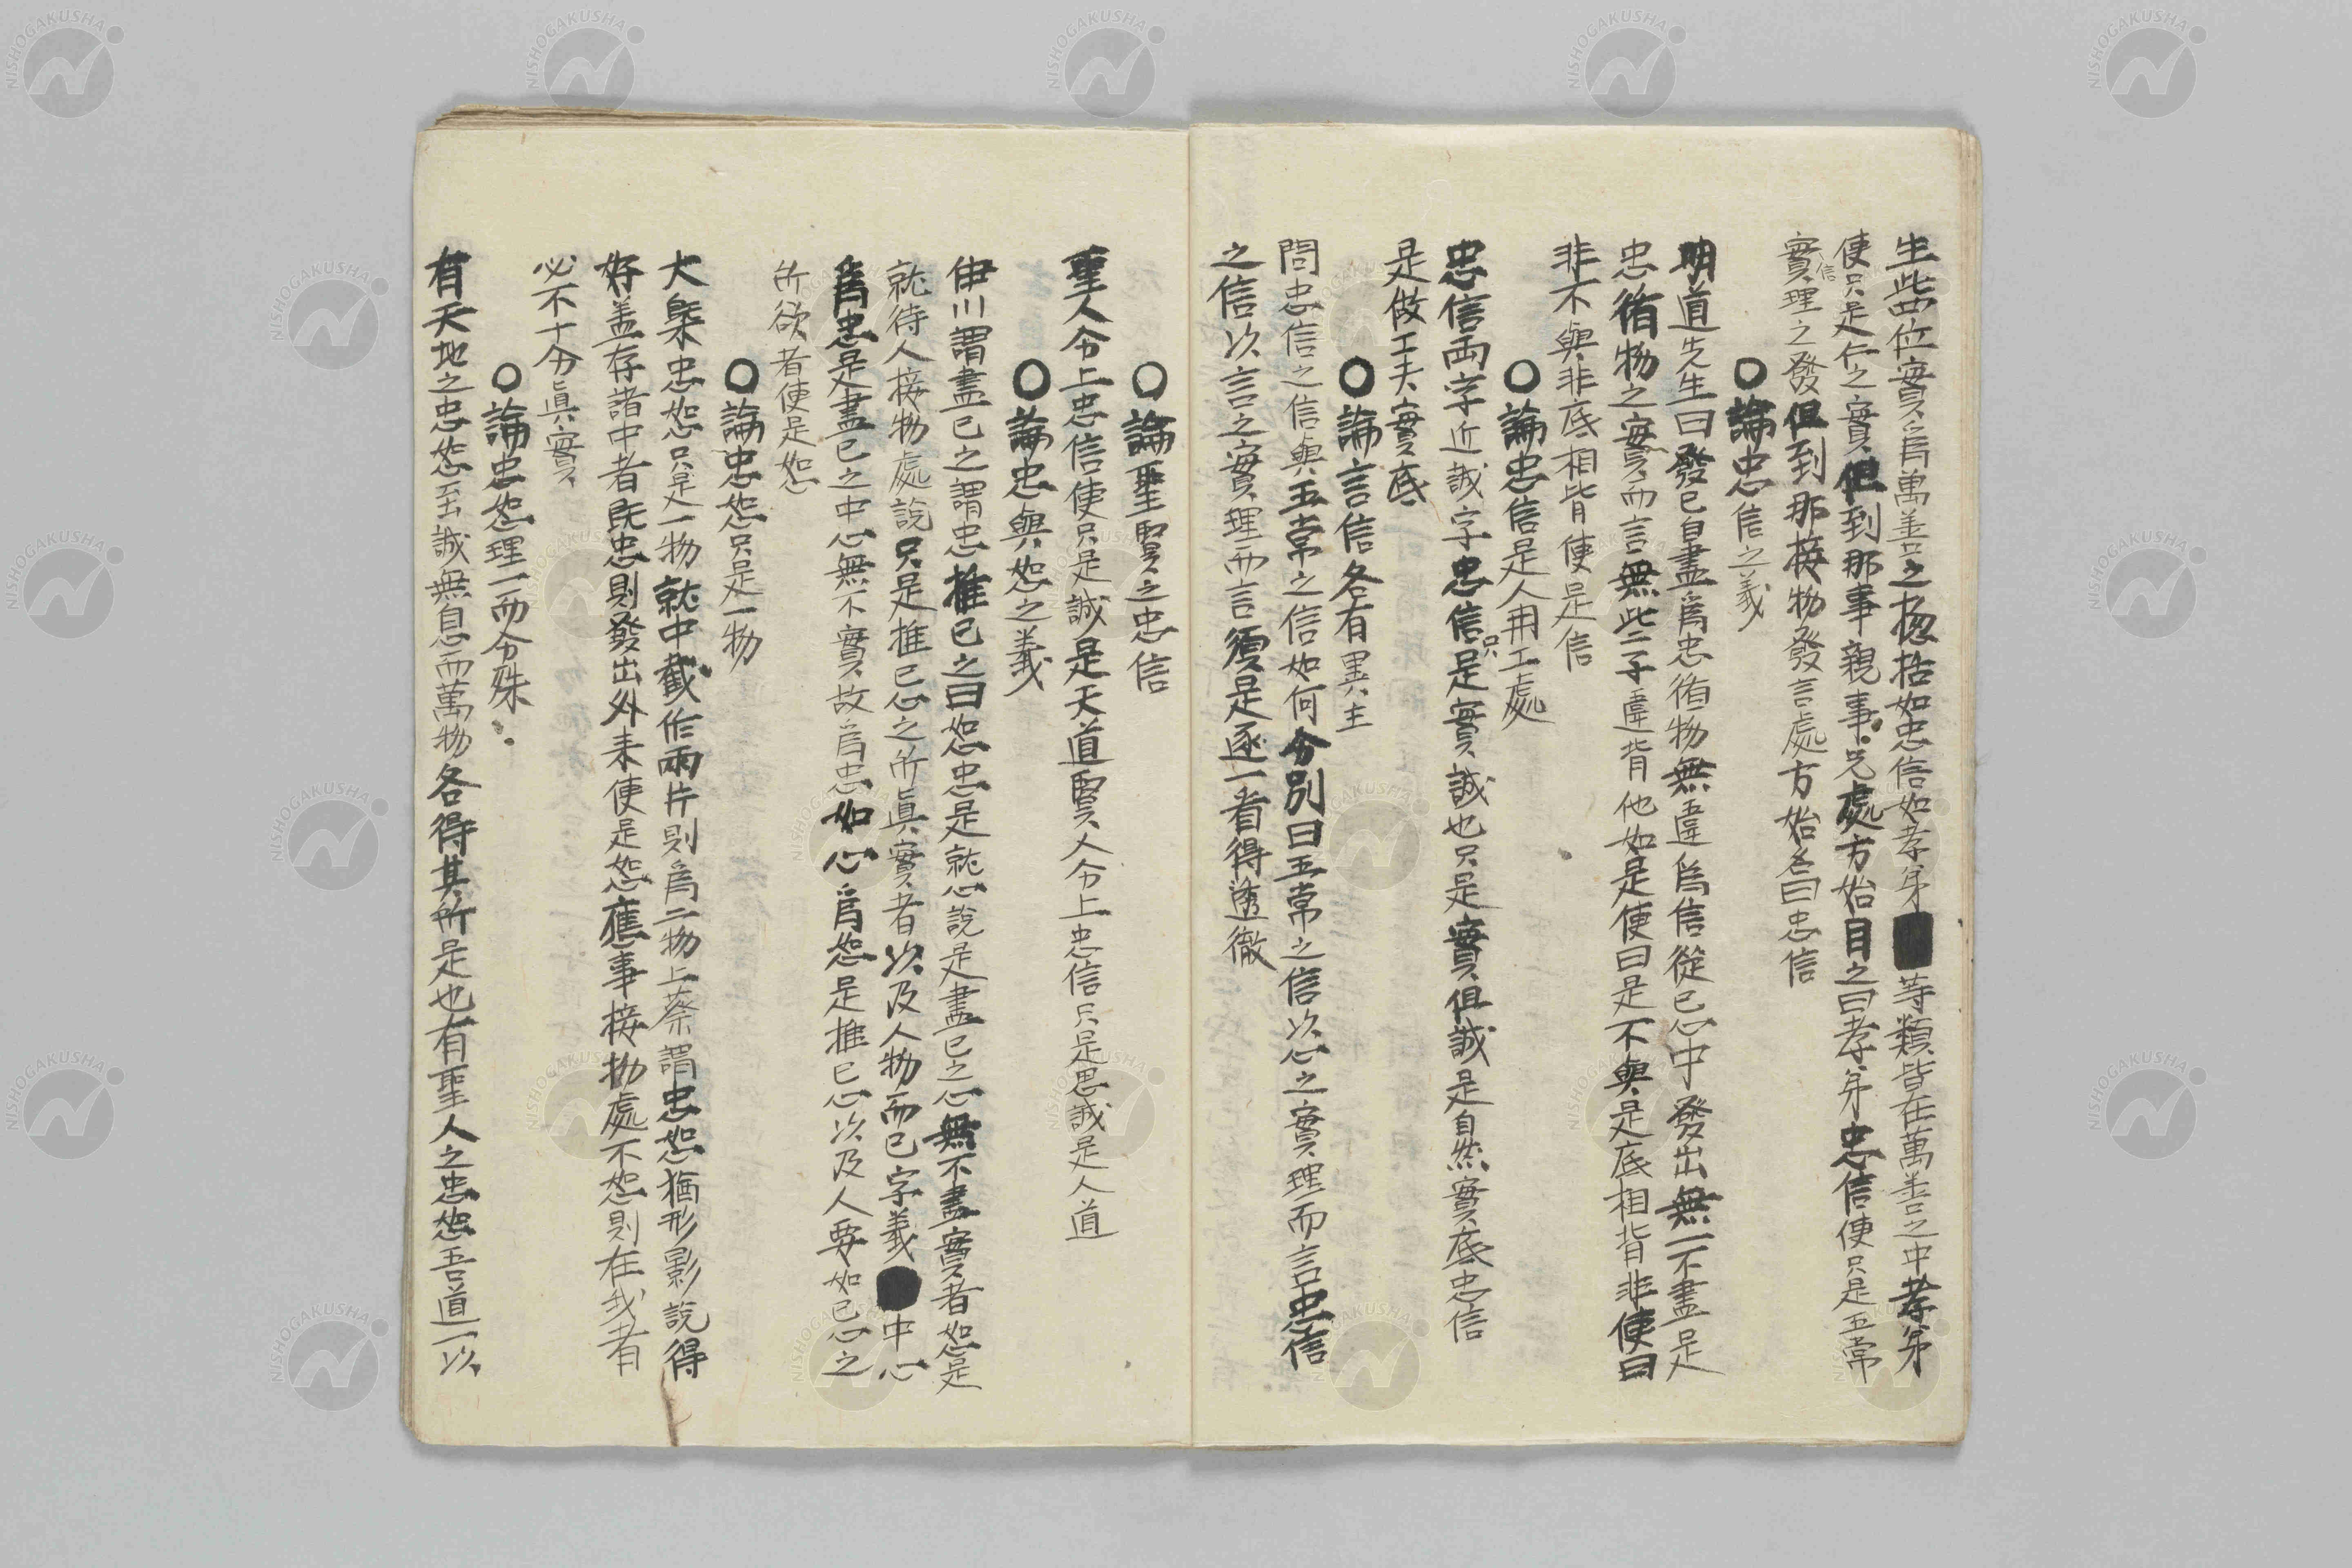 生此四位實爲萬善之揔括如忠信如孝弟等類皆在萬善之中孝弟
使只是仁之實但到那事親事兄處方始目之曰孝弟忠信使只是五常
實理之發但到那接物發言處方始名曰忠信
信
○論忠信之義
明道先生曰發己自盡爲忠循物無違爲信從己心中發出無一不盡是
忠循物之實而言無此二子違背他如是使曰是不與是底相背非使曰
非不與非底相背使是信
○論忠信是人用工處
忠信兩字近誠字忠信只是實誠也只是實但誠是自然實底忠信
是做工夫實底
○論言信各有異主
問忠信之信與五常之信如何分別曰五常之信以心之實理而言忠信
之信以言之實理而言須是逐一看得透徹
○論聖賢之忠信
聖人分上忠信使只是誠是天道賢人分上忠信只是思誠是人道
○論忠與恕之義
伊川謂盡己之謂忠推己之曰恕忠是就心說是盡己之心無不盡實者恕是
就待人接物處說只是推己心之所眞實者以及人物而已字義中心
爲忠是盡己之中心無不實故爲忠如心爲恕是推己心以及人要如己心之
所欲者使是恕
○論忠恕只是一物
大槩忠恕只是一物就中截作兩片則爲二物上蔡謂忠恕猶形影說得
好盖存諸中者旣忠則發出外來使是恕應事接物處不恕則在我者
必不十分眞實
○論忠恕理一而分殊
有天地之忠恕至誠無息而萬物各得其所是也有聖人之忠恕吾道一以